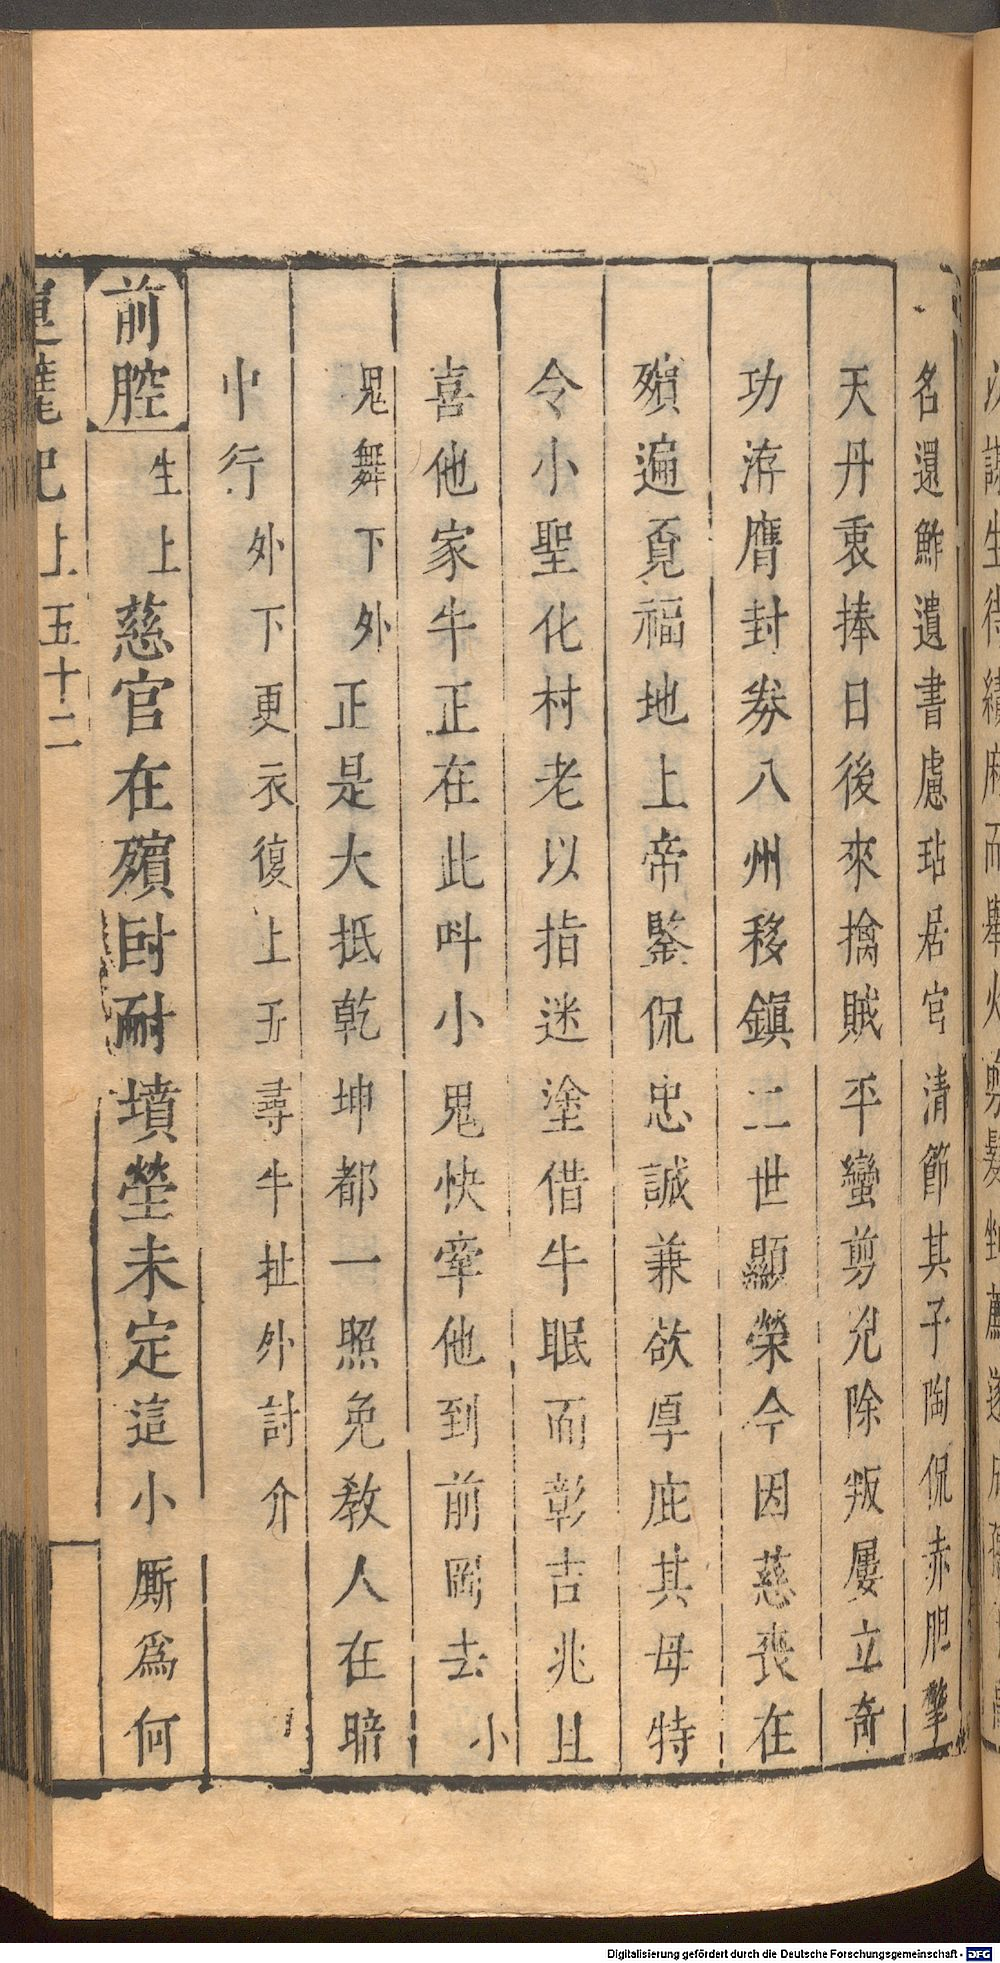 名還鮓遺書慮玷居官清節其子陶侃赤胆擎
天丹衷捧日後來擒賊平蠻剪兇除叛屢立奇
功洊膺封劵八州移鎮二世顯榮今因慈喪在
殯遍覓福地上帝鑒侃忠誠兼欲厚庇其母特
令小聖化村老以指迷塗借牛眠而彰吉兆且
喜他家牛正在此呌小鬼快牽他到前岡去小
鬼舞下外正是大抵乾坤都一照免教人在暗
中行外下更衣復上丑尋牛扯外討介
前腔生上慈官在殯時耐墳塋未定這小厮爲何
運甓記上五十二
Digitalisierung gefördert durch die Deutsche Forschungsgemeinschaft - DFG